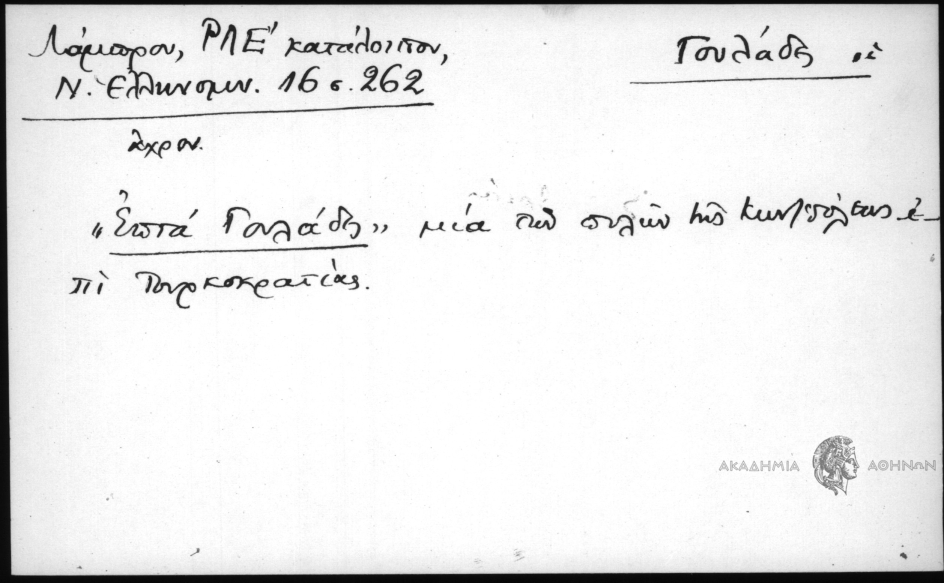 Λάμπρου, ΡΛΕʹ κατάλοιπον,
Ν. Ἑλληνομν. 16 σ. 262
Γουλάδες, οἱ
ἄχρον.
"Ἑπτά Γουλάδες" μία τῶν πυλῶν τῆς Κων/πόλεως ἐ-
πὶ Τουρκοκρατίας.
ΑΚΑΔΗΜΙΑ ΑΘΗΝΩΝ